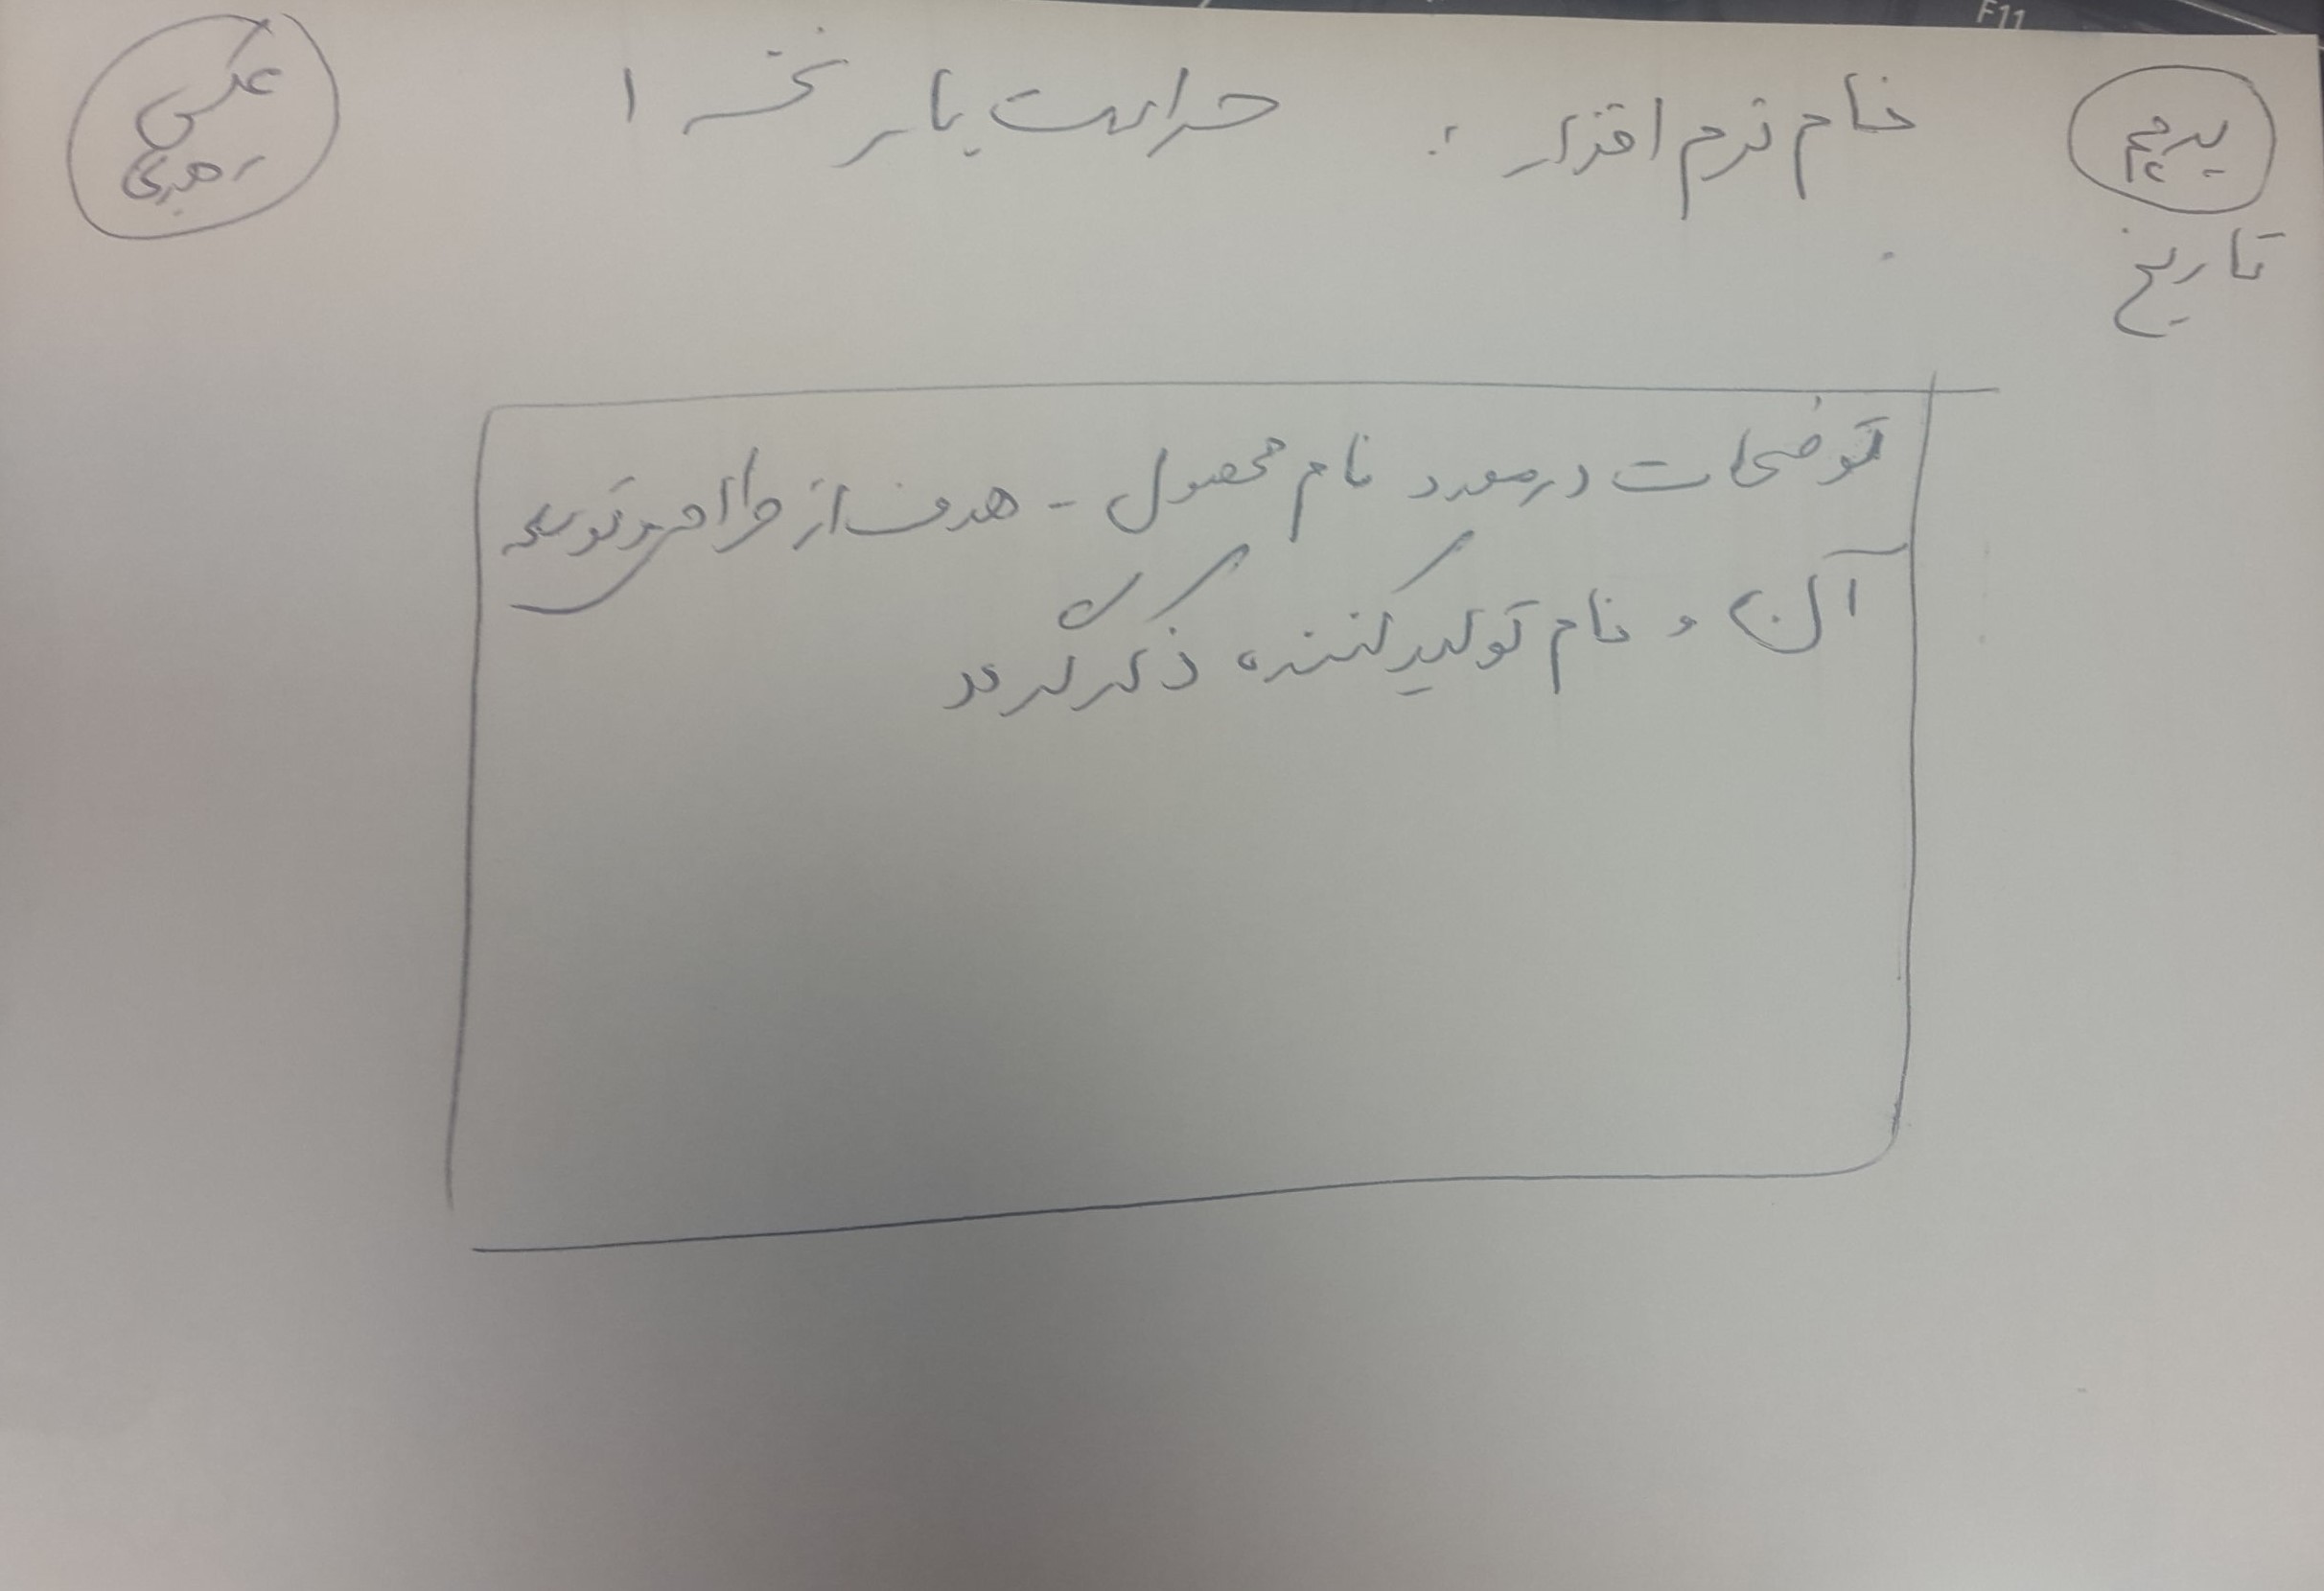 F11
پرچم
نام نرم افزار : حراست یار نسخه ۱
عکس
رهبری
تاریخ
توضیحات در مورد نام محصول - هدف از طراحی و توسعه
آن و نام تولید کننده ذکر گردد